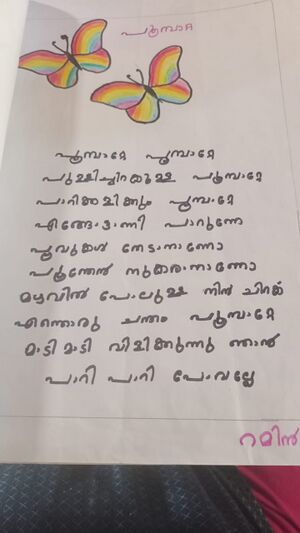 പൂമ്പാറ്റ
പൂമ്പാറ്റേ പൂമ്പാറ്റേ
പുള്ളിച്ചിറകുള്ള പൂമ്പാറ്റേ
പാറിക്കളിക്കും പൂമ്പാറ്റേ
എങ്ങോട്ടാണീ പാറുന്നേ
പൂവുകൾ തേടാനാണോ
പൂന്തേൻ നുകരാനാണോ
മഴവിൽ പോലുള്ള നിൻ ചിറക്
എന്തൊരു ചന്തം പൂമ്പാറ്റേ
മാടി മാടി വിളിക്കുന്നു ഞാൻ
പാറി പാറി പോവല്ലേ
റമിൻ